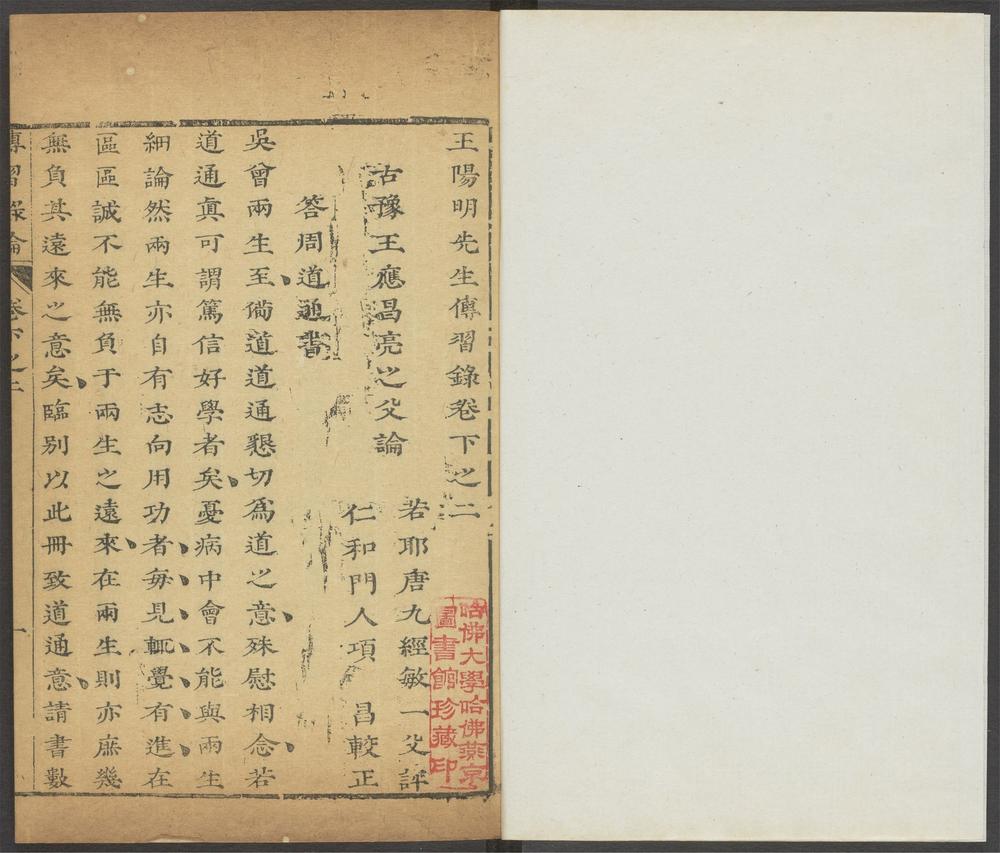 王陽明先生傳習錄卷下之二
若耶唐九經敏一父評
古豫王應昌亮之父論
仁和門人項 昌較正
答周道通書
吳曾兩生至備道道通懇切爲道之意殊慰相念若
道通眞可謂篤信好學者矣憂病中會不能與兩生
細論然兩生亦自有志向用功者每見輒覺有進在
區區誠不能無負于兩生之遠來在兩生則亦庶幾
無負其遠來之意矣臨別以此冊致道通意請書數
傳習錄論 卷下之二 一
哈佛大學哈佛燕京
圖書館珍藏印